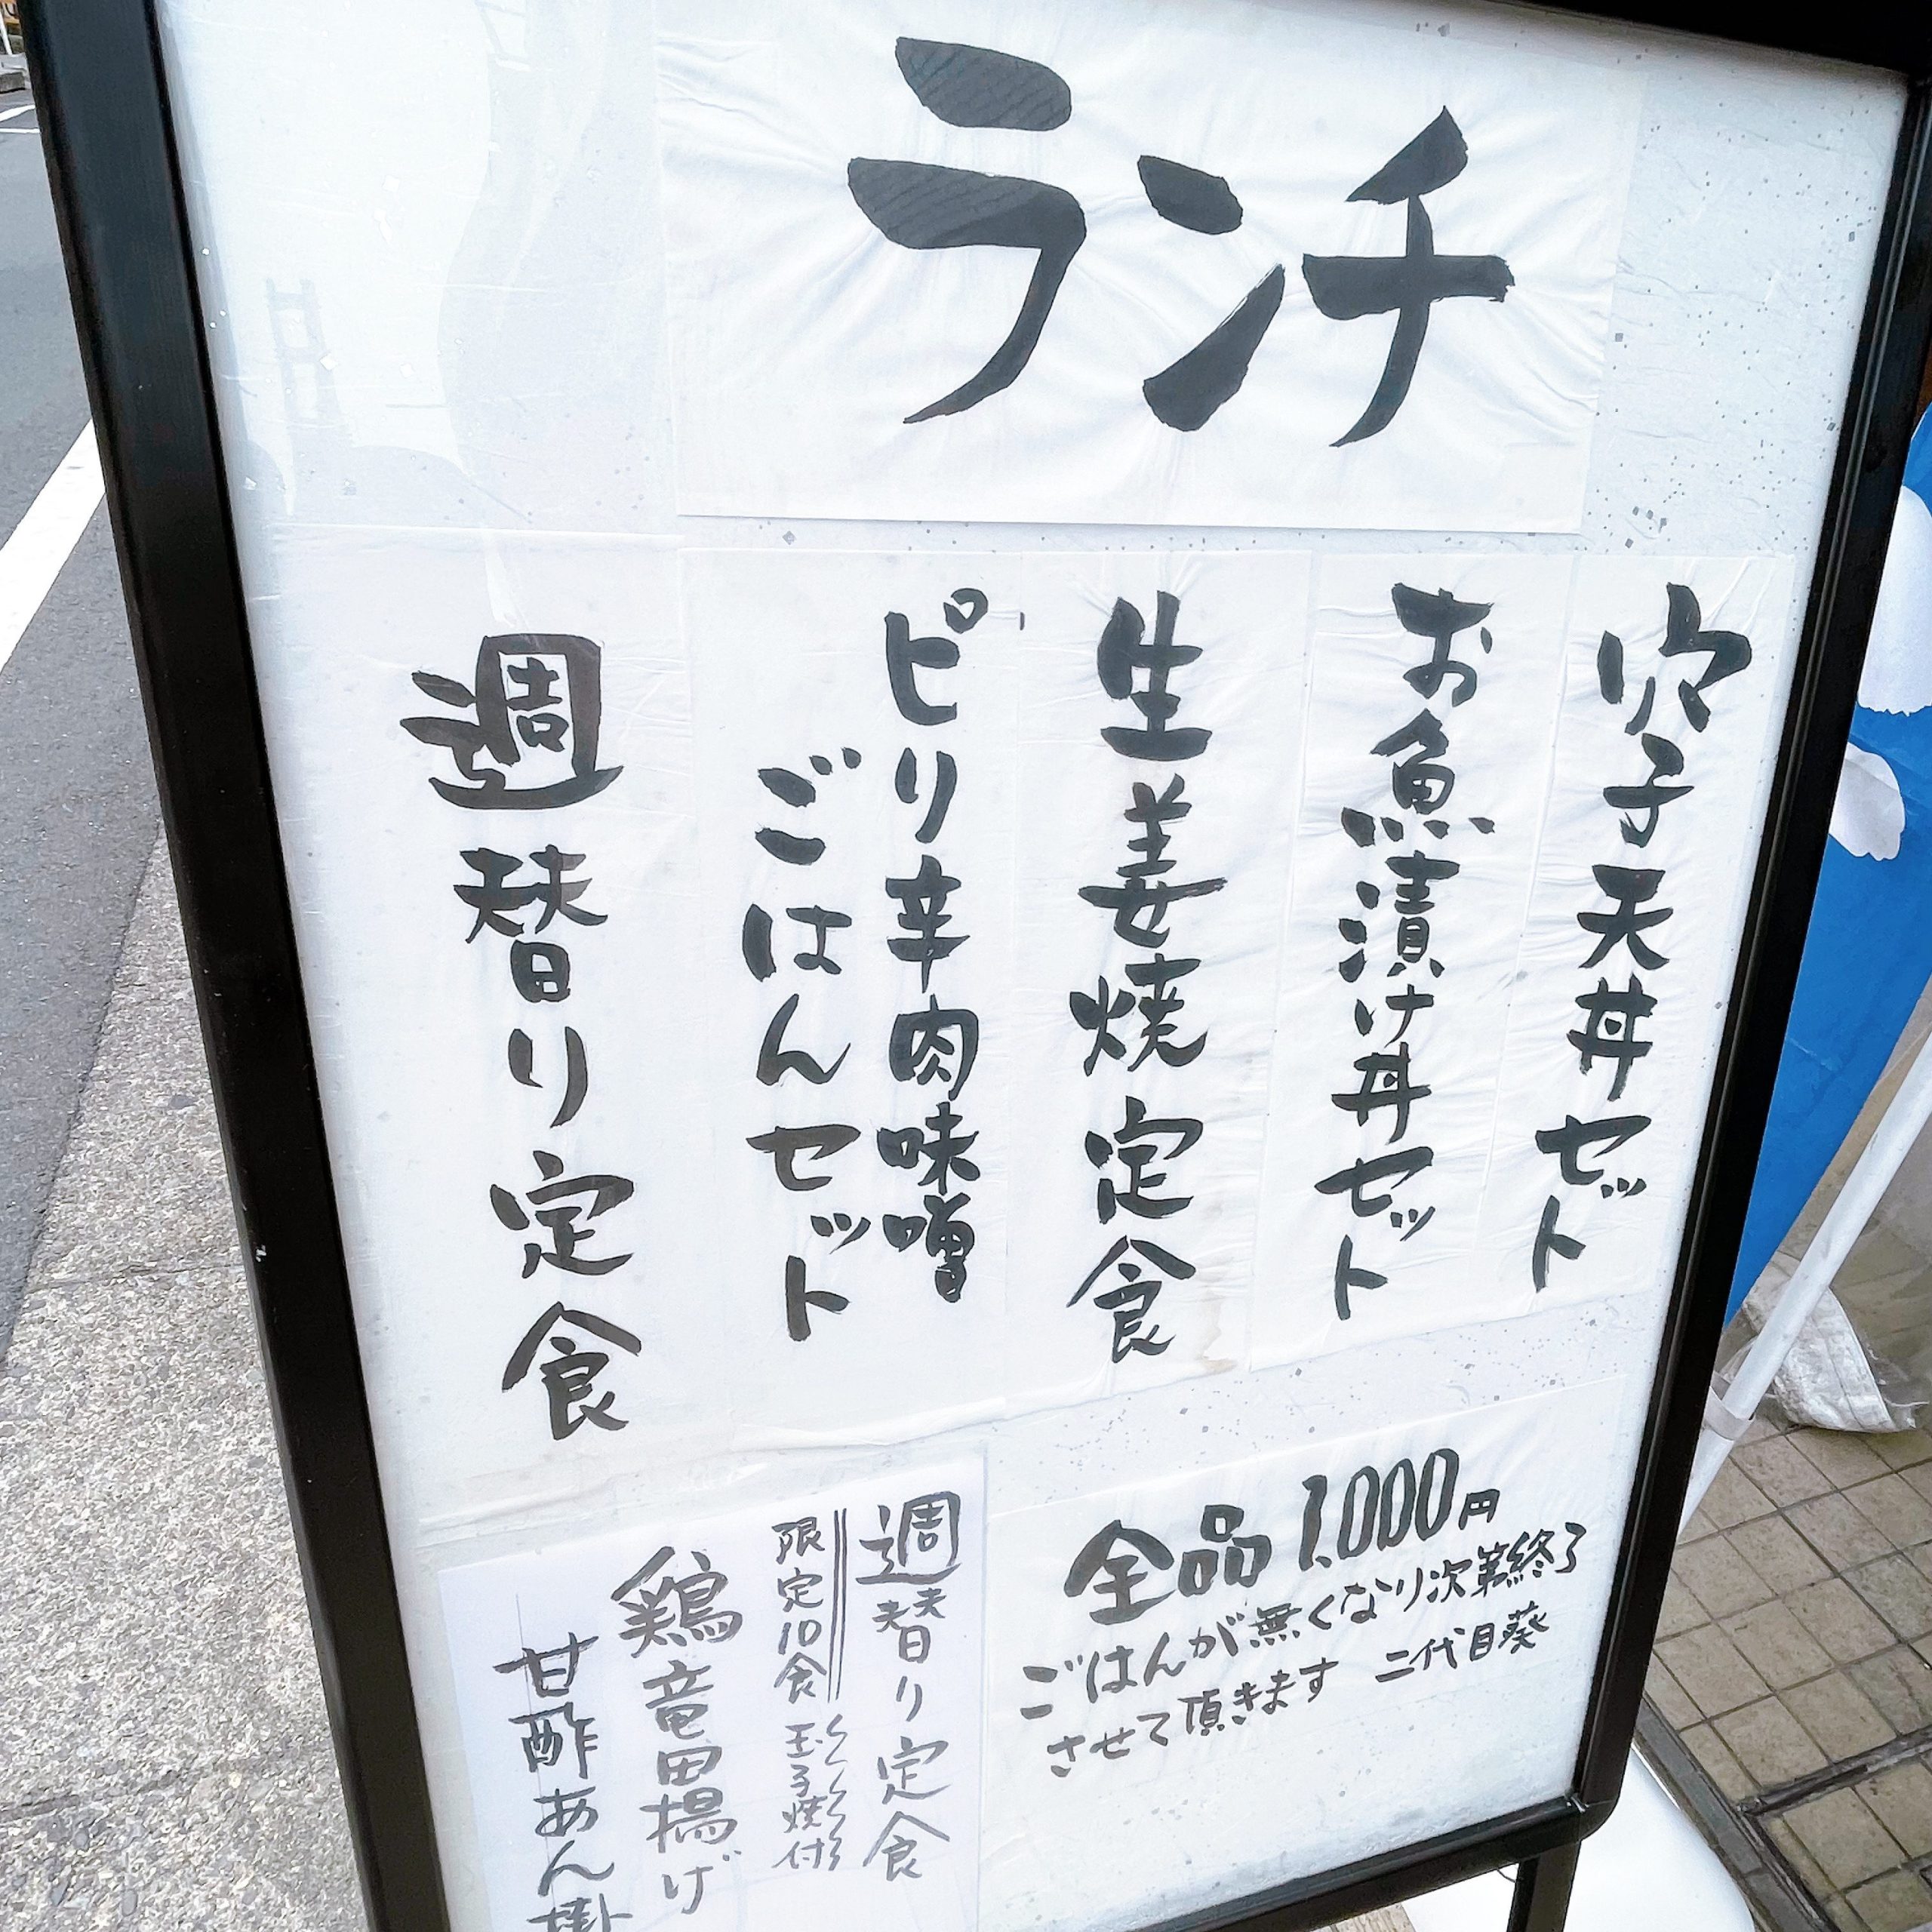 ランチ
穴子天丼セット
お魚漬け丼セット
生姜焼定食
ピリ辛肉味噌
ごはんセット
週替り定食
全品1.000円
ごはんが無くなり次第終了
させて頂きます 二代目葵
週替り定食
限定10食 玉子焼付
鶏竜田揚げ
甘酢あん掛